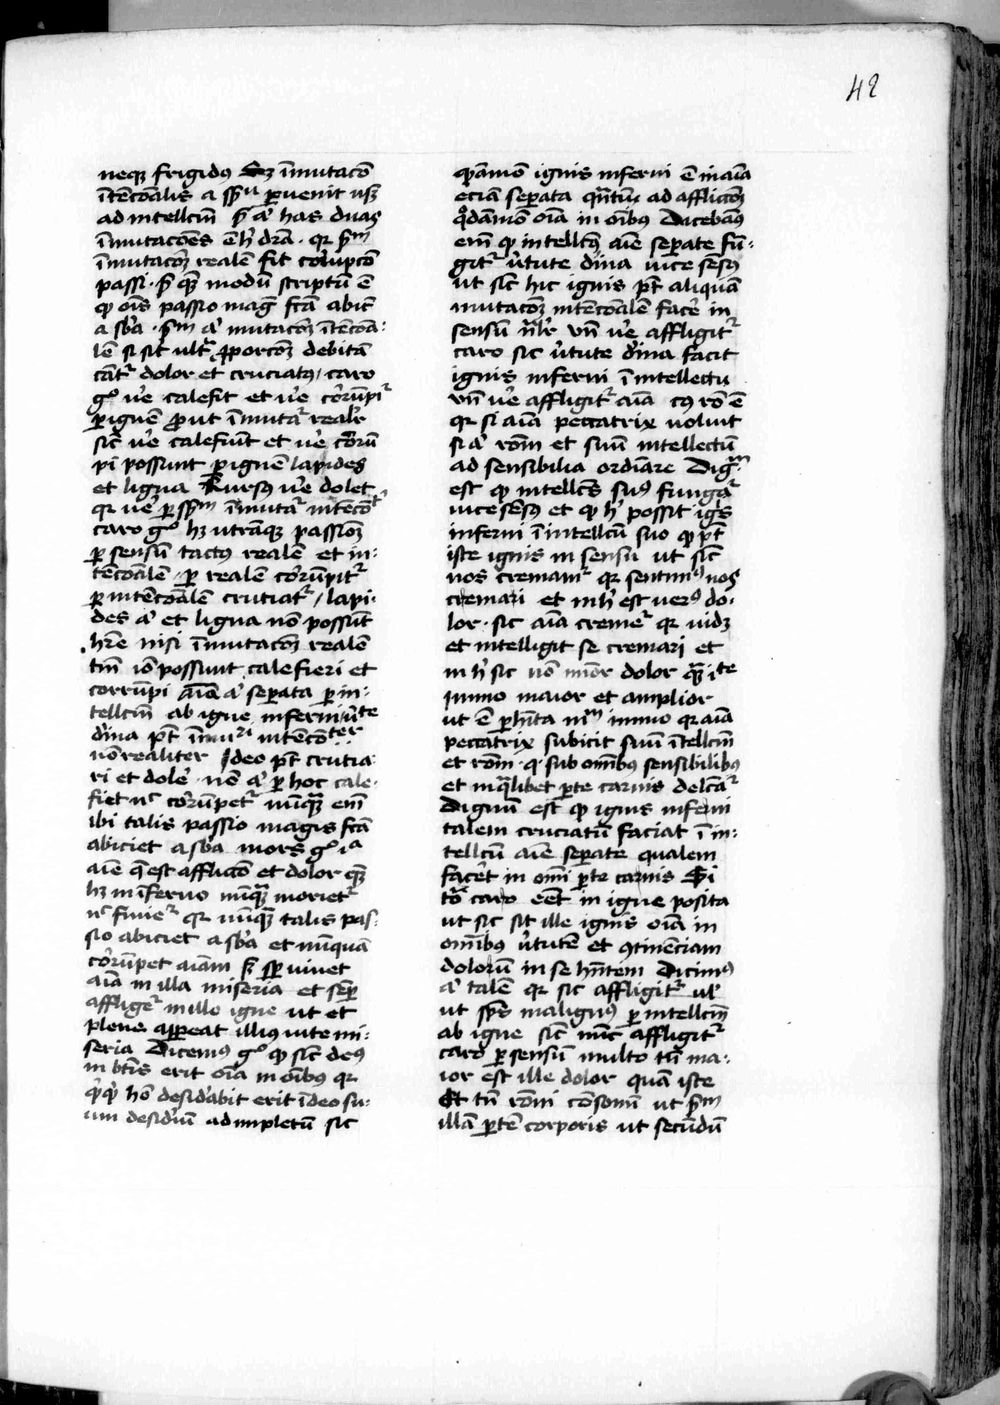 42
neqꝫ frigidꝰ Sꝫ īmutaco᷒
ītēcōalis a spū ꝑuenit usqꝫ
ad intellcm̄ has duas
īmutacoēs ē
īmutacōꝫ realē fit corrupco᷒
passi modū scriptū ē
ꝙ oīs passio maḡ fcā abicit
a sb̄a mutacōꝫ ītēcoa
lē si sit ult᷑ ꝓporcōꝫ debitā
cāt᷑ dolor et cruciatꝰ / caro
gͦ ue̓ calefit et ue̓ corrūpi᷑
ꝑ ignē ꝓut īmutat᷑ realr̓
sic̄ ue̓ calefiūt et ue̓ corrū
pi possunt ꝑ ignē lapides
et ligna Rursꝰ ue̓ dolet
qr ue̓ ꝑ spm̄ īmutat᷑
caro gͦ hꝫ utrāqꝫ passionꝫ
ꝑ sensū tactꝰ realē et in:
tēcōalē ꝑ realē corrūpit᷑
ꝑ intēcōalē crutiat᷑ / lapi:
des a̓ et ligna nō possūt
hr̄e nisi īmutacōꝫ realē
tm̄ iō possunt calefieri et
corrūpi aīa a̓ seperata ꝑ in:
tellcm̄ ab igne inferni ūte
dīna pt̄
nō realiter Ideo pt̄ crutia
ri et dole̓ nō a̓ ꝑ hoc cale
fiet nͨ corrūpet᷑ nūqꝫ em̄
ibi talis passio magis fcā
abiciet a sb̄a mors gͦ
aīe q̄ est afflicco᷒ et dolor
hꝫ in inferno nūqꝫ moriet᷑
nͨ finie᷑ qr nūqꝫ talis pas
sio abiciet a sb̄a et nunquā
corrūpet aīam sꝫ sp̄ uivet
aīa in illa miseria et semꝑ
afflige᷑ in illo igne ut et
plene appeat illius uite mi:
seria Dicemꝰ gͦ ꝙ sic̄ deꝰ
in btīs erit oīa in oībꝰ qr
hō desiderabit erit īdeo su:
um desidiū adimpletū sic
quāmō ignis inferni ē in aīa
eciā seperata qntū ad affliccōꝫ
qͦdāmō oīa in oībꝰ Dicebāꝰ
em̄ ꝙ intellcꝰ aīe seperate fū:
git᷑ ūtute dīna uice sēsꝰ
ut sic hic ignis pt̄ aliquā
mutacōꝫ intēcoalē face̓ in
sensū n̄lr̄ vn̄ ue̓ affligit᷑
caro sic ūtute dīna facit
ignis inferni ī intellectu
vn̄ ue̓ affligit᷑ aīa cꝰ rō ē
qr si aīa peccatrix uoluit
si a̓ rōm et suū intellectū
ad sensibilia ordīare
est ꝙ intellcꝰ suꝰ funga᷑
uice sēsꝰ et ꝙ h̓ possit igīs
inferni ī intellcū suo ꝙ pt̄
iste ignis in sensu ut sic̄
nos cremam᷑ qr sentimꝰ nos
cremari et in h̓ est uerꝰ do:
lor sic aīa creme᷑ qr uidꝫ
et intelligit se cremari et
in h̓ sic nō mīor dolor qꝫ iste
jmmo maior et amplior
ut ē immo qr aīa
peccatrix subicit suū ītellcm̄
et rōm sub omībus sensibilibꝰ
et in qͣlibet ꝑte carnis
Dignū est ꝙ ignis inferni
talem cruciatū faciat ī in:
tellcū aīe seperate qualem
face̓t in omi ꝑte carnis Si
caro eēt in igne posita
ut sic sit ille ignis oīa in
omībus ūtutē et ꝯtinēciam
dolorū in se hn̄tem Dicimꝰ
a̓ talē qr sic affligit᷑ ul̓
ut sp̄s malignꝰ ꝑ intellcm̄
ab igne sic̄ nūc affligit᷑
caro ꝑ sensū multo tn̄ ma:
ior est ille dolor quā iste
Et tn̄ rōni cōsonū ut
illā ꝑtē corporis ut secūdū